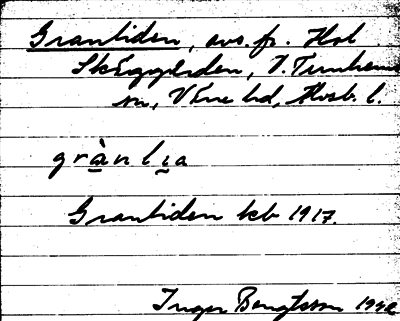 Granliden, avs. fr. Hst
Skäggården, V. Tunhems
sn, Väne hd, Älvsb. l.
grànlịa
Granliden kb 1917.
Inger Bengtsson